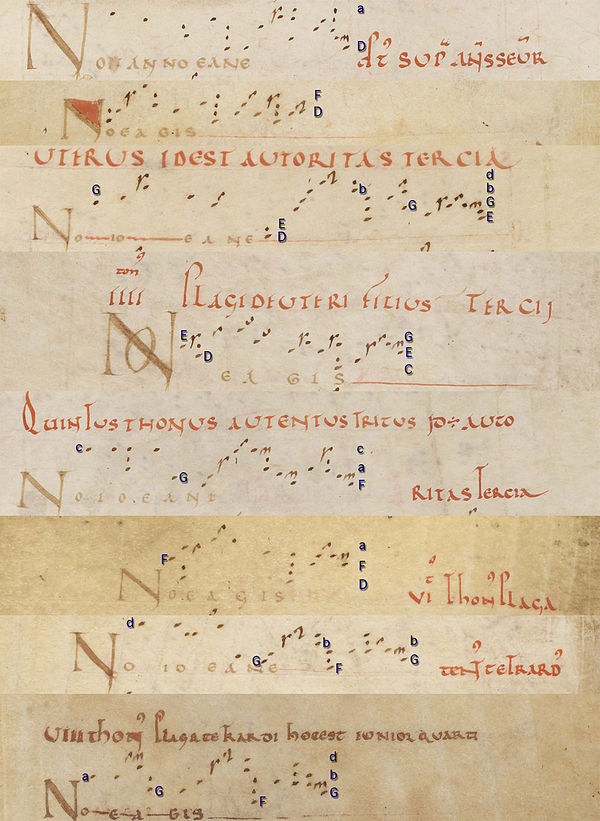 a
NO AN NO EANE
D
F
D
NOEA GIS
UTERUS IDEST AUTORITAS TERCIA
G
b
G
d
b
G
E
NO IO E A NE
E
D
ton
IIII PLAGI DEUTERI FILIUS TERCII
E
D
G
E
C
NO E A GIS
QUINTUS THONUS AUTENTUS TRITUS AUTO
c
G
c
a
F
NO I O E A NE
RITAS TERCIA
F
a
F
D
NO E A GIS
VI THON PLAGA
d
G
b
F
b
G
NO IO E A NE
VIII THON PLAGA TETRARDI HOC EST IUNIOR QUARTI
a
G
F
d
b
G
NO E A GIS